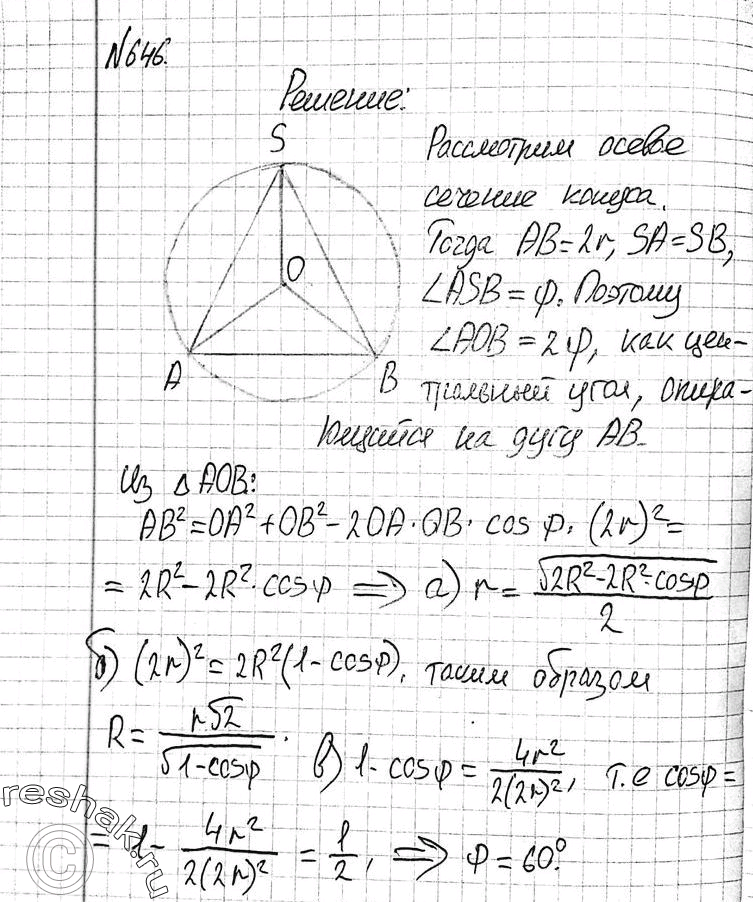 №646.
Решение:
S
O
A
B
Рассмотрим осевое
сечение конуса.
Тогда AB=2r, SA=SB,
∠ASB=φ. Поэтому
∠AOB=2φ, как цен-
тральный угол, опира-
ющийся на дугу AB.
Из △AOB:
AB²=OA²+OB²-2OA·OB·cos φ. (2r)²=
=2R²-2R²·cosφ ⟹ а) r=√(2R²-2R²·cosφ)/2
б) (2r)²=2R²(1-cosφ), таким образом
R=r√2/√(1-cosφ). в) 1-cosφ=4r²/2(2r)², т.е cosφ=
=1-4r²/2(2r)²=1/2, ⟹ φ=60°.
reshak.ru
©